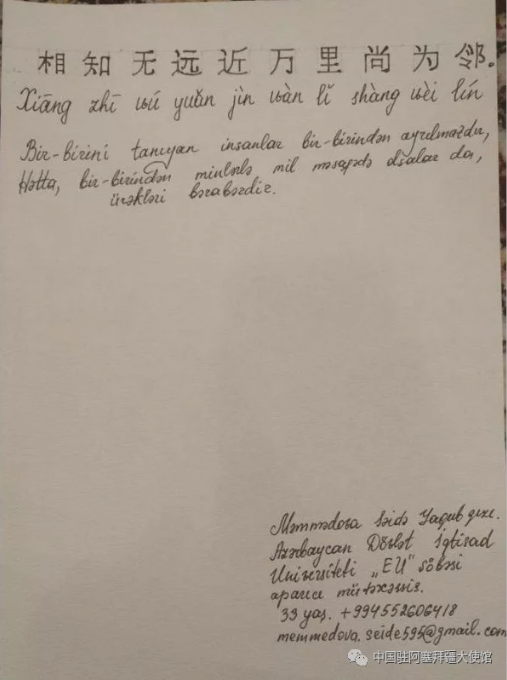 相知无远近万里尚为邻。
Xiāng zhī wú yuǎn jìn wàn lǐ shàng wèi lín
Bir-birini tanıyan insanlar bir-birindən ayrılmazdır,
Hətta, bir-birindən minlərlə mil məsafədə olsalar da,
ürəkləri bərabərdir.
Məmmədova Səidə Yaqub qızı.
Azərbaycan Dövlət İqtisad
Universiteti „EU" şöbəsi
aparıcı mütəxəssis.
33 yaş. +994552606418
memmedova.seide595@gmail.com
中国驻阿塞拜疆大使馆